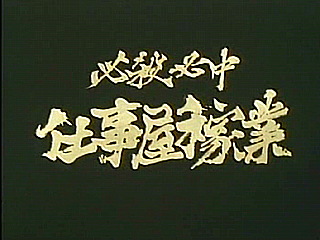 必殺必中
仕事屋稼業